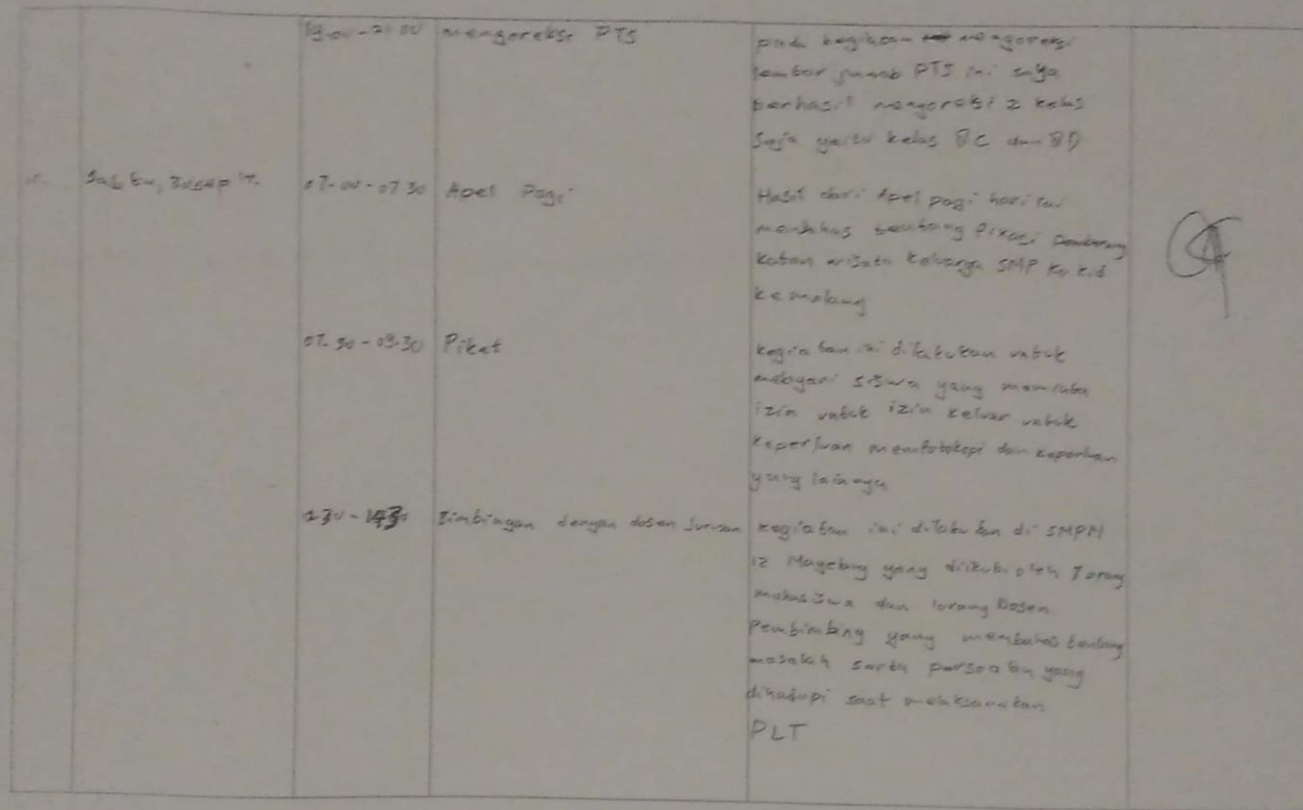 19.00-21.00 mengoreksi PTS
pada kegiatan mengoreksi
lembar jawab PTS ini saya
berhasil mengoreksi 2 kelas
saja yaitu kelas 8C dan 8D
Sabtu, 30 sep 17. 07.00-07.30 Apel Pagi
Hasil dari Apel pagi hari ini
membahas tentang fixasi
wisata keluarga SMP
kemalang
07.30-09.30 Piket
kegiatan ini dilakukan untuk
siswa yang meminta
izin untuk izin keluar untuk
keperluan memfotokopi dan keperluan
yang lainnya
Bimbingan dengan dosen Jurusan
kegiatan ini dilakukan di SMPN
12 Magelang yang diikuti oleh 7 orang
mahasiswa dan 1 orang Dosen
Pembimbing yang membahas tentang
masalah serta yang
dihadapi saat melaksanakan
PLT